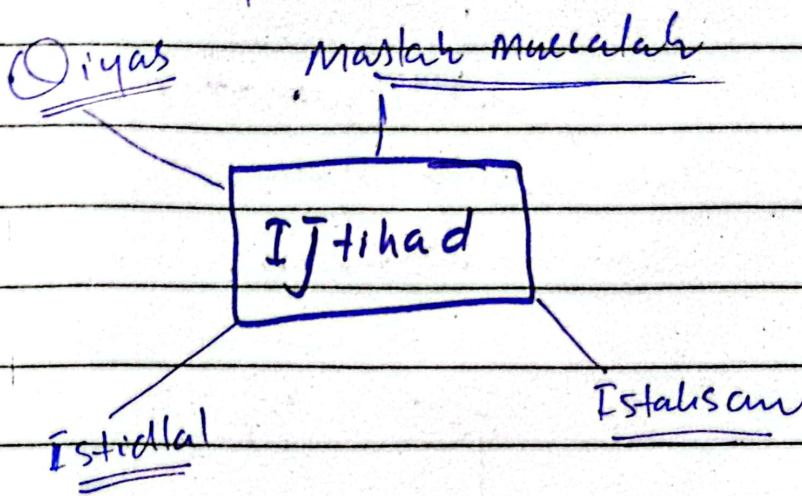 Qiyas
Maslah Mursalah
IJtihad
Istahsan
Istidlal